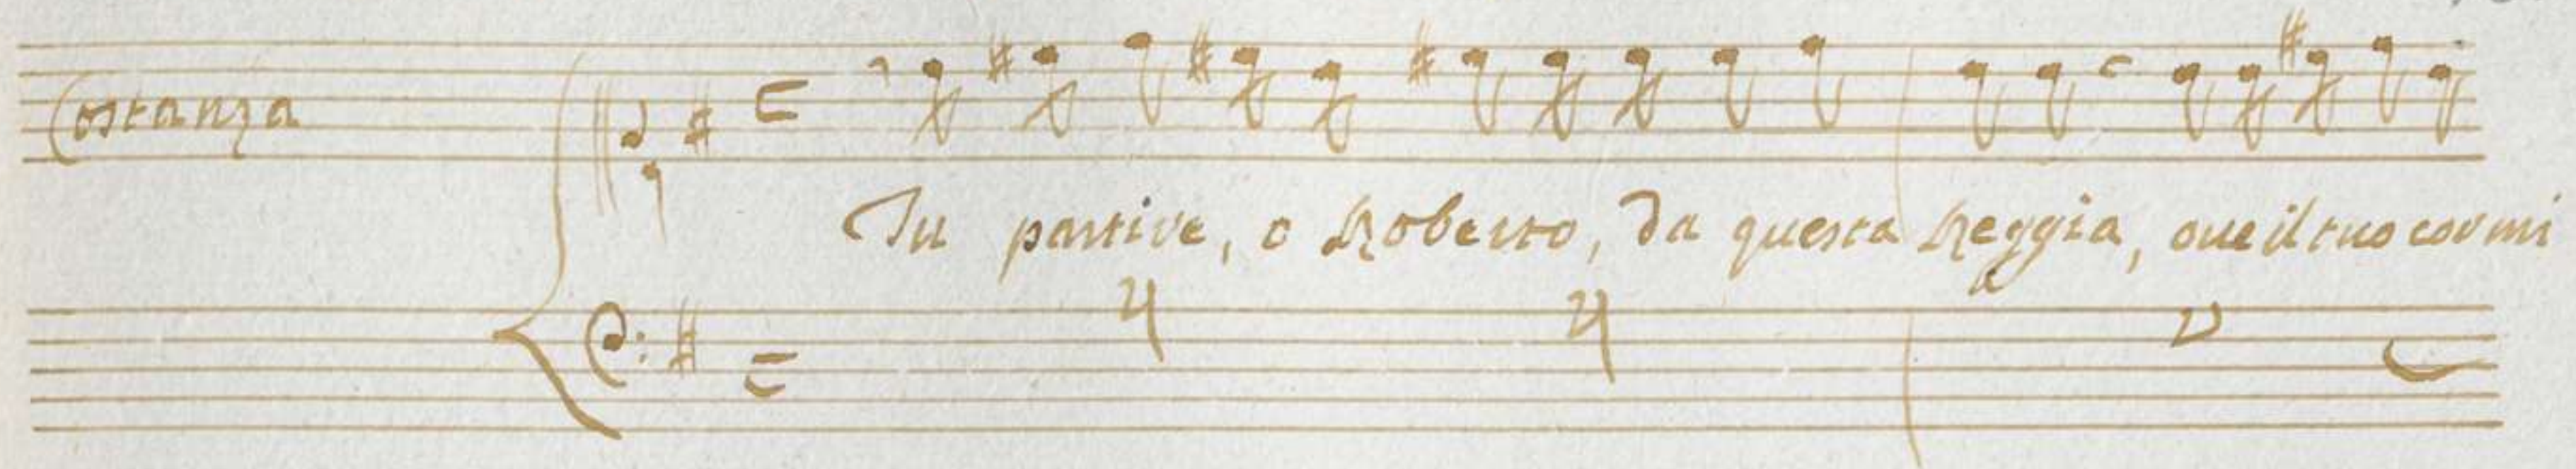 Costanza
Tu partire, o Roberto, da questa Reggia, ove il tuo cor mi